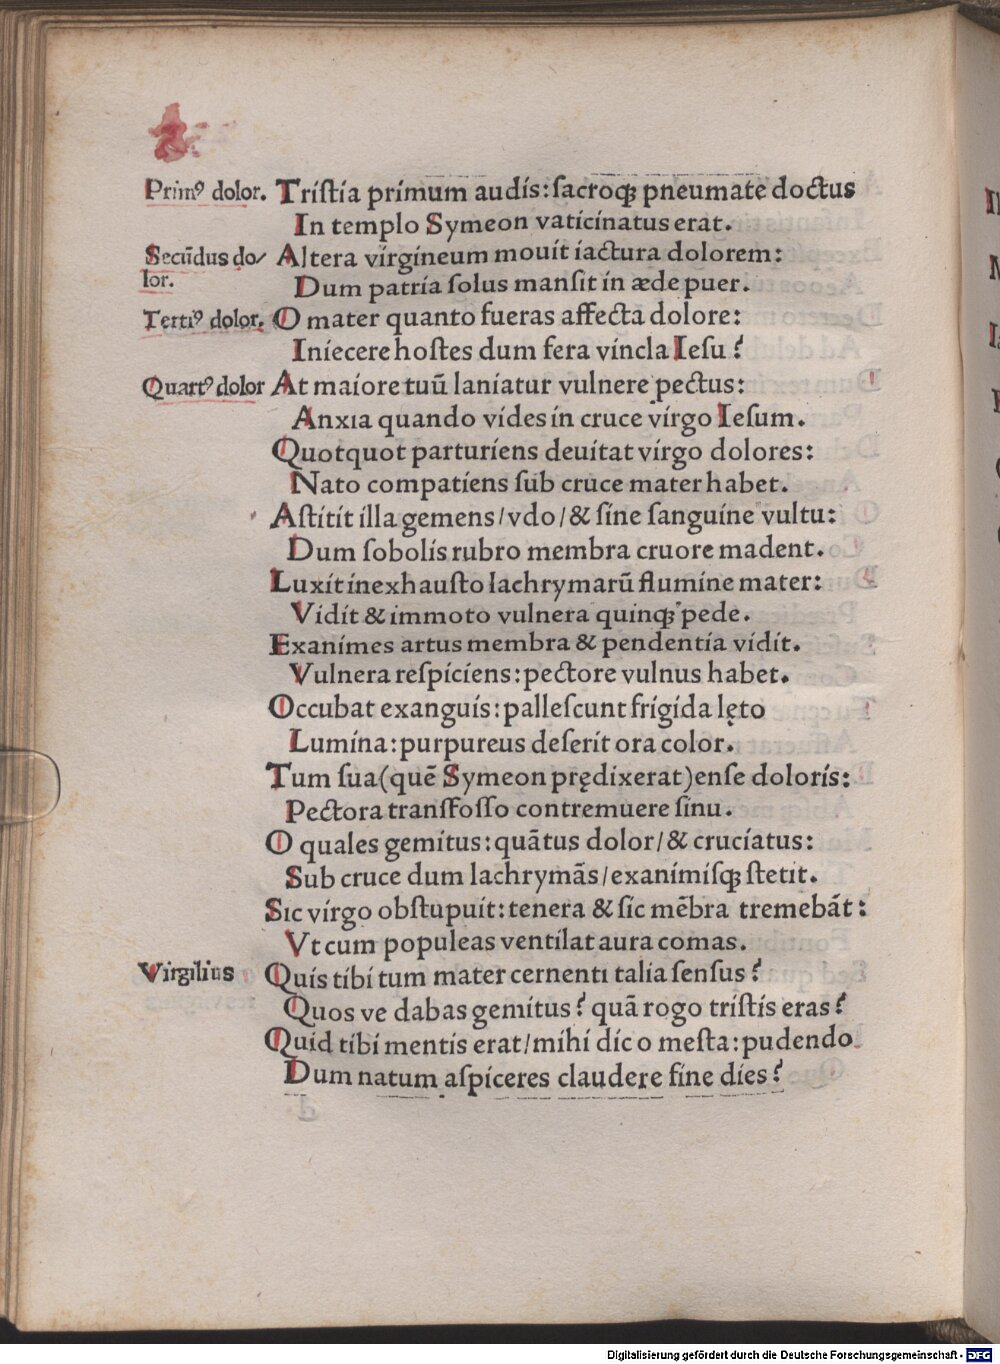 Primꝰ dolor. Triſtia primum audis: ſacroqꝫ pneumate doctus
In templo Symeon vaticinatus erat.
Secũdus do⸗ Altera virgineum mouit iactura dolorem:
lor. Dum patria ſolus manſit in æde puer.
Tertiꝰ dolor. O mater quanto fueras affecta dolore:
Iniecere hoſtes dum fera vincla Ieſu?
Quartꝰ dolor At maiore tuũ laniatur vulnere pectus:
Anxia quando vides in cruce virgo Ieſum.
Quotquot parturiens deuitat virgo dolores:
Nato compatiens ſub cruce mater habet.
Aſtitit illa gemens/vdo/& ſine ſanguine vultu:
Dum ſobolis rubro membra cruore madent.
Luxit inexhauſto lachrymarũ flumine mater:
Vidit & immoto vulnera quinqꝫ pede.
Exanimes artus membra & pendentia vidit.
Vulnera reſpiciens: pectore vulnus habet.
Occubat exanguis: palleſcunt frigida lęto
Lumina: purpureus deſerit ora color.
Tum ſua(quẽ Symeon prędixerat)enſe doloris:
Pectora tranſfoſſo contremuere ſinu.
O quales gemitus: quãtus dolor/& cruciatus:
Sub cruce dum lachrymãs/exanimiſqꝫ ſtetit.
Sic virgo obſtupuit: tenera & ſic mẽbra tremebãt:
Vt cum populeas ventilat aura comas.
Virgilius Quis tibi tum mater cernenti talia ſenſus?
Quos ve dabas gemitus? quã rogo triſtis eras?
Quid tibi mentis erat/mihi dic o meſta: pudendo
Dum natum aſpiceres claudere fine dies?
Digitalisierung gefördert durch die Deutsche Forschungsgemeinschaft - DFG